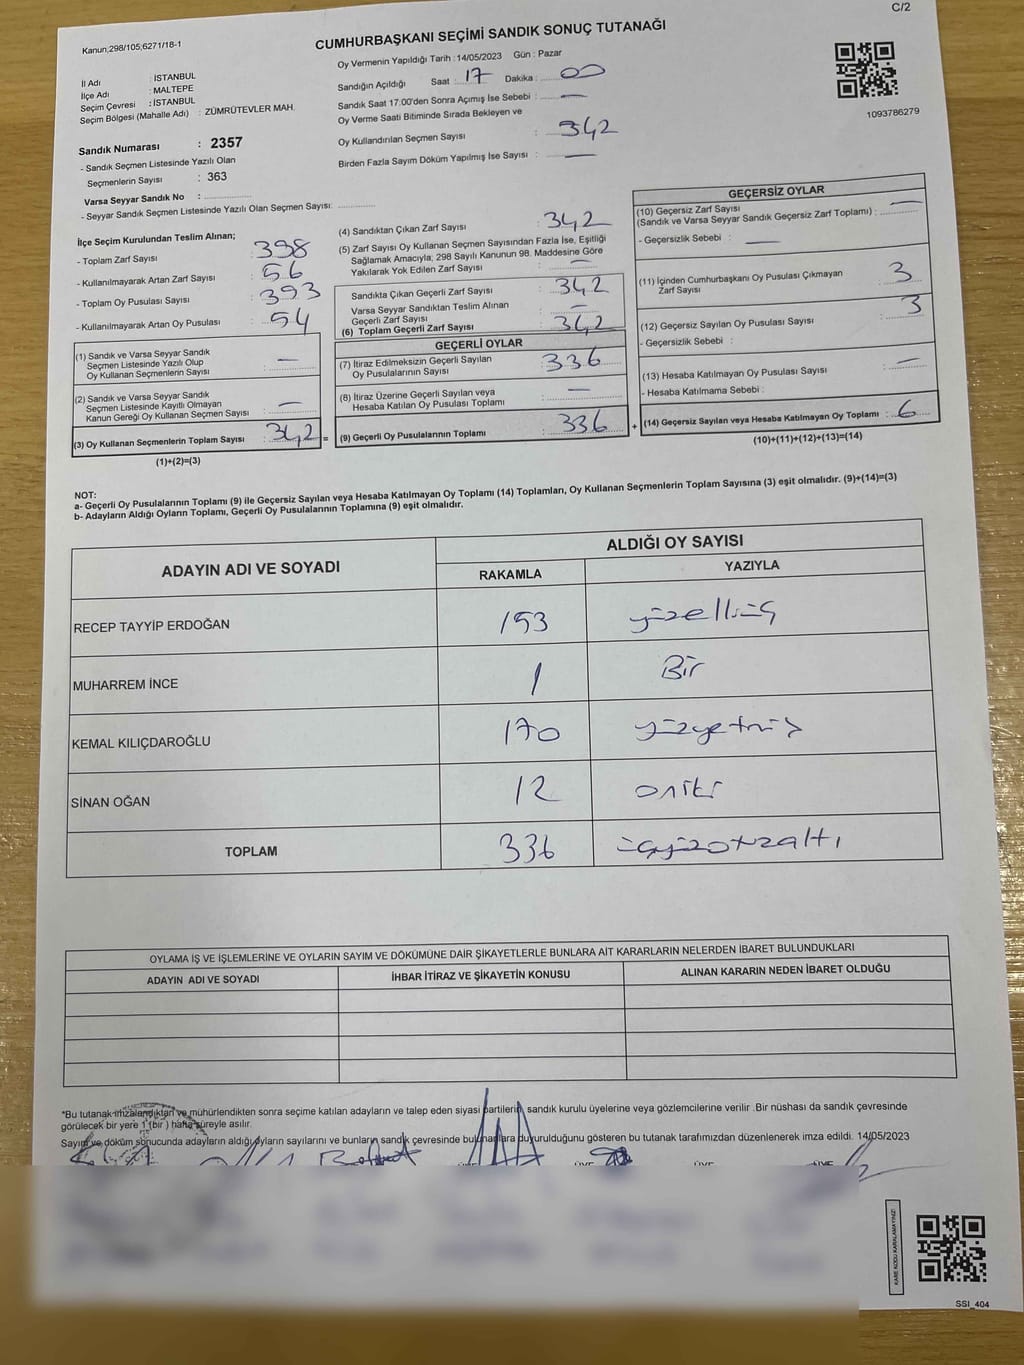 C/2
Kanun,298/105,6271/18-1
CUMHURBAŞKANI SEÇİMİ SANDIK SONUÇ TUTANAĞI
Oy Vermenin Yapıldığı Tarih :14/05/2023 Gün : Pazar
İl Adı : İSTANBUL
İlçe Adı : MALTEPE
Seçim Çevresi : İSTANBUL
Seçim Bölgesi (Mahalle Adı) : ZÜMRÜTEVLER MAH.
Sandığın Açıldığı Saat : 17 Dakika : 00
Sandık Saat 17.00'den Sonra Açımış İse Sebebi : —
Oy Verme Saati Bitiminde Sırada Bekleyen ve
Oy Kullandırılan Seçmen Sayısı : 342
Birden Fazla Sayım Döküm Yapılmış İse Sayısı : —
1093786279
Sandık Numarası : 2357
- Sandık Seçmen Listesinde Yazılı Olan
Seçmenlerin Sayısı : 363
Varsa Seyyar Sandık No :
- Seyyar Sandık Seçmen Listesinde Yazılı Olan Seçmen Sayısı:
İlçe Seçim Kurulundan Teslim Alınan;
- Toplam Zarf Sayısı : 398
- Kullanılmayarak Artan Zarf Sayısı : 56
- Toplam Oy Pusulası Sayısı : 393
- Kullanılmayarak Artan Oy Pusulası : 54
(1) Sandık ve Varsa Seyyar Sandık
Seçmen Listesinde Yazılı Olup
Oy Kullanan Seçmenlerin Sayısı : —
(2) Sandık ve Varsa Seyyar Sandık
Seçmen Listesinde Kayıtlı Olmayan
Kanun Gereği Oy Kullanan Seçmen Sayısı : —
(3) Oy Kullanan Seçmenlerin Toplam Sayısı : 342 =
(1)+(2)=(3)
(4) Sandıktan Çıkan Zarf Sayısı : 342
(5) Zarf Sayısı Oy Kullanan Seçmen Sayısından Fazla İse, Eşitliği
Sağlamak Amacıyla; 298 Sayılı Kanunun 98. Maddesine Göre
Yakılarak Yok Edilen Zarf Sayısı : —
Sandıkta Çıkan Geçerli Zarf Sayısı : 342
Varsa Seyyar Sandıktan Teslim Alınan
Geçerli Zarf Sayısı : —
(6) Toplam Geçerli Zarf Sayısı : 342
GEÇERLİ OYLAR
(7) İtiraz Edilmeksizin Geçerli Sayılan
Oy Pusulalarının Sayısı : 336
(8) İtiraz Üzerine Geçerli Sayılan veya
Hesaba Katılan Oy Pusulası Toplamı : —
(9) Geçerli Oy Pusulalarının Toplamı : 336 +
GEÇERSİZ OYLAR
(10) Geçersiz Zarf Sayısı
(Sandık ve Varsa Seyyar Sandık Geçersiz Zarf Toplamı) : —
- Geçersizlik Sebebi : —
(11) İçinden Cumhurbaşkanı Oy Pusulası Çıkmayan
Zarf Sayısı : 3
(12) Geçersiz Sayılan Oy Pusulası Sayısı : 3
- Geçersizlik Sebebi :
(13) Hesaba Katılmayan Oy Pusulası Sayısı : —
- Hesaba Katılmama Sebebi :
(14) Geçersiz Sayılan veya Hesaba Katılmayan Oy Toplamı : 6
(10)+(11)+(12)+(13)=(14)
NOT:
a- Geçerli Oy Pusulalarının Toplamı (9) ile Geçersiz Sayılan veya Hesaba Katılmayan Oy Toplamı (14) Toplamları, Oy Kullanan Seçmenlerin Toplam Sayısına (3) eşit olmalıdır. (9)+(14)=(3)
b- Adayların Aldığı Oyların Toplamı, Geçerli Oy Pusulalarının Toplamına (9) eşit olmalıdır.
ADAYIN ADI VE SOYADI
ALDIĞI OY SAYISI
RAKAMLA YAZIYLA
RECEP TAYYİP ERDOĞAN 153 yüzelliüç
MUHARREM İNCE 1 Bir
KEMAL KILIÇDAROĞLU 170 yüzyetmiş
SİNAN OĞAN 12 oniki
TOPLAM 336 üçyüzotuzaltı
OYLAMA İŞ VE İŞLEMLERİNE VE OYLARIN SAYIM VE DÖKÜMÜNE DAİR ŞİKAYETLERLE BUNLARA AİT KARARLARIN NELERDEN İBARET BULUNDUKLARI
ADAYIN ADI VE SOYADI İHBAR İTİRAZ VE ŞİKAYETİN KONUSU ALINAN KARARIN NEDEN İBARET OLDUĞU
*Bu tutanak imzalandıktan ve mühürlendikten sonra seçime katılan adayların ve talep eden siyasi partilerin, sandık kurulu üyelerine veya gözlemcilerine verilir .Bir nüshası da sandık çevresinde
görülecek bir yere 1 (bir ) hafta süreyle asılır.
Sayım ve döküm sonucunda adayların aldığı oyların sayılarını ve bunların sandık çevresinde bulunanlara duyurulduğunu gösteren bu tutanak tarafımızdan düzenlenerek imza edildi. 14/05/2023
ÜYE ÜYE ÜYE
KARE KODU KARALAMAYINIZ!
SSI_404